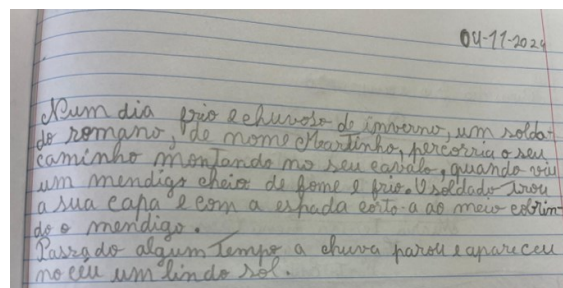 04-11-2024
Num dia frio e chuvoso de inverno, um solda-
do romano, de nome Martinho, percorria o seu
caminho montando no seu cavalo, quando viu
um mendigo cheio de fome e frio. O soldado tirou
a sua capa e com a espada corto-a ao meio cobrin-
do o mendigo.
Passado algum tempo a chuva parou e apareceu
no céu um lindo sol.